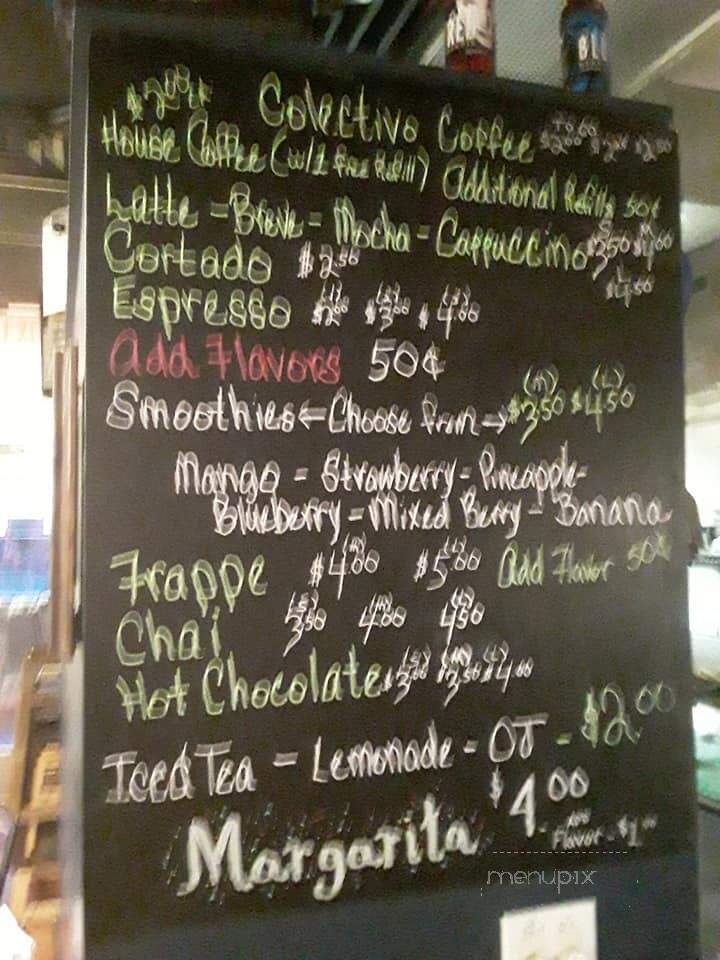 Colectivo Coffee
House Coffee (w/1 free Refill) Additional Refills 50¢
Latte - Breve - Mocha - Cappuccino $3.50 $4.00
$4.50
Cortado $2.50
Espresso $3.00 $4.00
Add Flavors 50¢
(M) (L)
Smoothies ← Choose from → $3.50 $4.50
Mango - Strawberry - Pineapple -
Blueberry - Mixed Berry - Banana
(M) (L)
Frappe $4.00 $5.00 Add Flavor 50¢
(S) (M) (L)
Chai 3.50 4.00 4.50
(S) (M) (L)
Hot Chocolate $3.00 $3.50 $4.00
Iced Tea - Lemonade - OJ - $2.00
Margarita $4.00
Flavor - $1.00
menupix